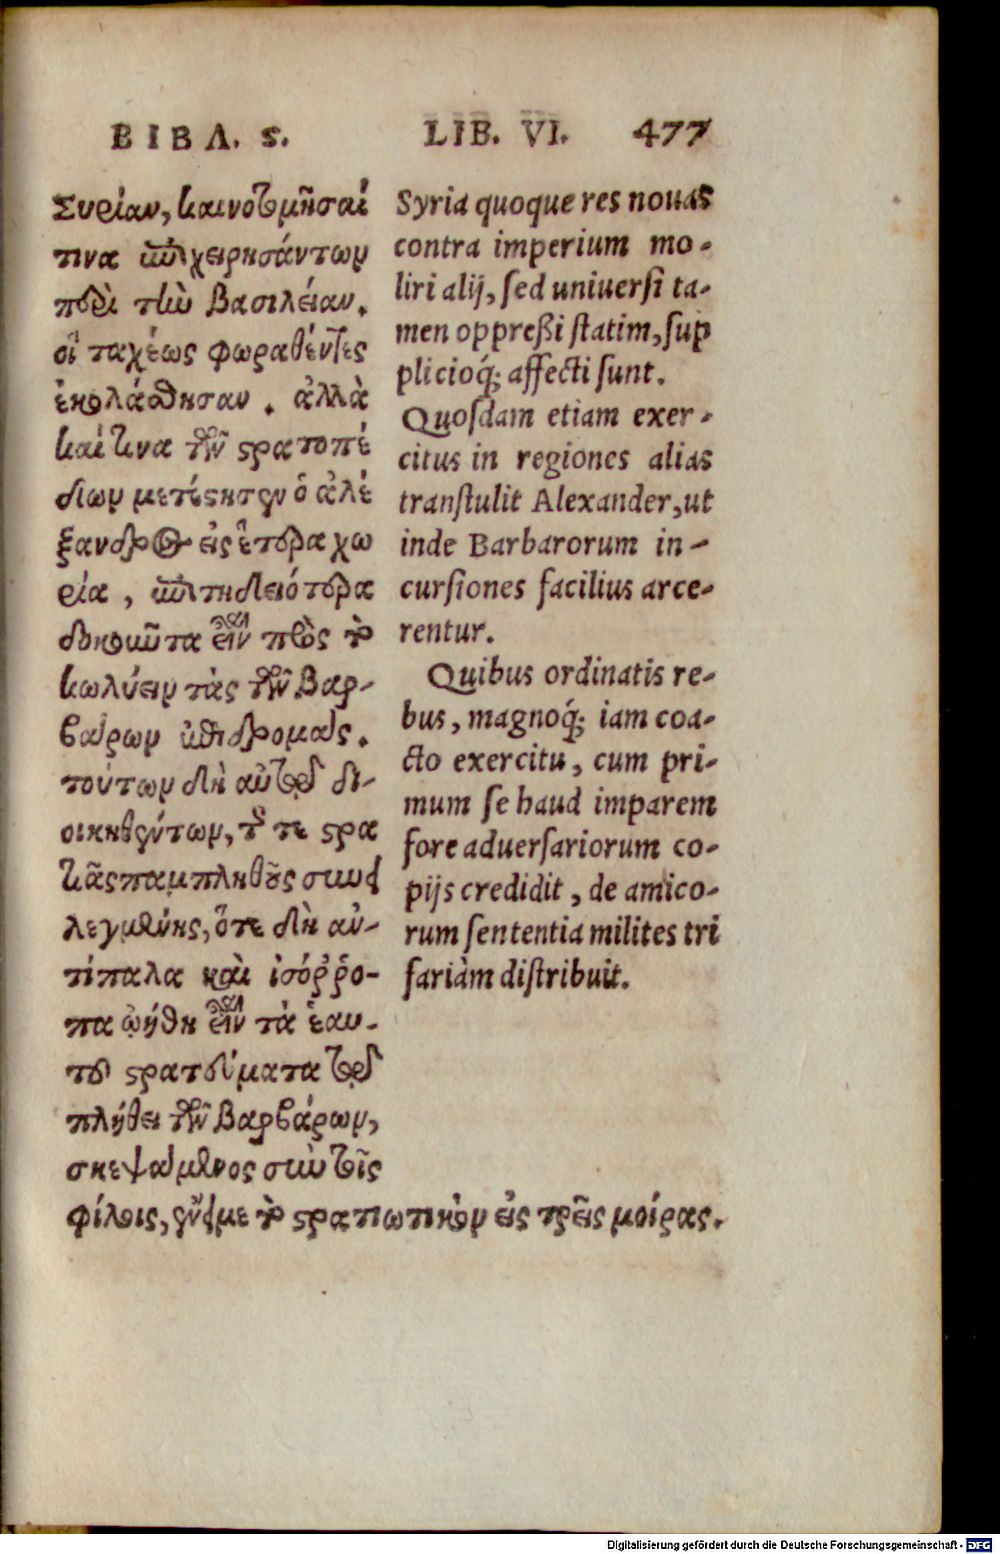 ΒΙΒΛ. ϛ.
Συρίαν, καινοτομῆσαί
τινα ἐπιχειρησάντων
περὶ τὴν βασιλείαν.
οἳ ταχέως φωραθέντες
ἐκολάσθησαν. ἀλλὰ
καί τινα τῶν στρατοπέ
δίων μετέστησεν ὁ ἀλέ
ξανδρος εἰς ἕτερα χω
ρία, ἐπιτηδειότερα
δοκοῦντα εἶναι πρὸς τὸ
κωλύειν τὰς τῶν βαρ-
βάρων ἐπιδρομάς.
τούτων δὴ αὐτῷ δι-
οικηθέντων, τοῦ τε στρα
τοῦ παμπλήθους συνει
λεγμένης, ὅτε δὴ ἀν-
τίπαλα καὶ ἰσόῤῥο-
πα ᾠήθη εἶναι τὰ ἑαυ-
τοῦ στρατεύματα τῷ
πλήθει τῶν βαρβάρων,
σκεψάμενος σὺν τοῖς
φίλοις, ἔνειμε τὸ στρατιωτικὸν εἰς τρεῖς μοίρας.
LIB. VI. 477
Syria quoque res nouas
contra imperium mo-
liri alij, sed uniuersi ta-
men oppreßi statim, sup
plicioq́; affecti sunt.
Quosdam etiam exer-
citus in regiones alias
transtulit Alexander, ut
inde Barbarorum in-
cursiones facilius arce-
rentur.
Quibus ordinatis re-
bus, magnoq́; iam coa-
cto exercitu, cum pri-
mum se haud imparem
fore aduersariorum co-
pijs credidit, de amico-
rum sententia milites tri
fariàm distribuit.
Digitalisierung gefördert durch die Deutsche Forschungsgemeinschaft - DFG